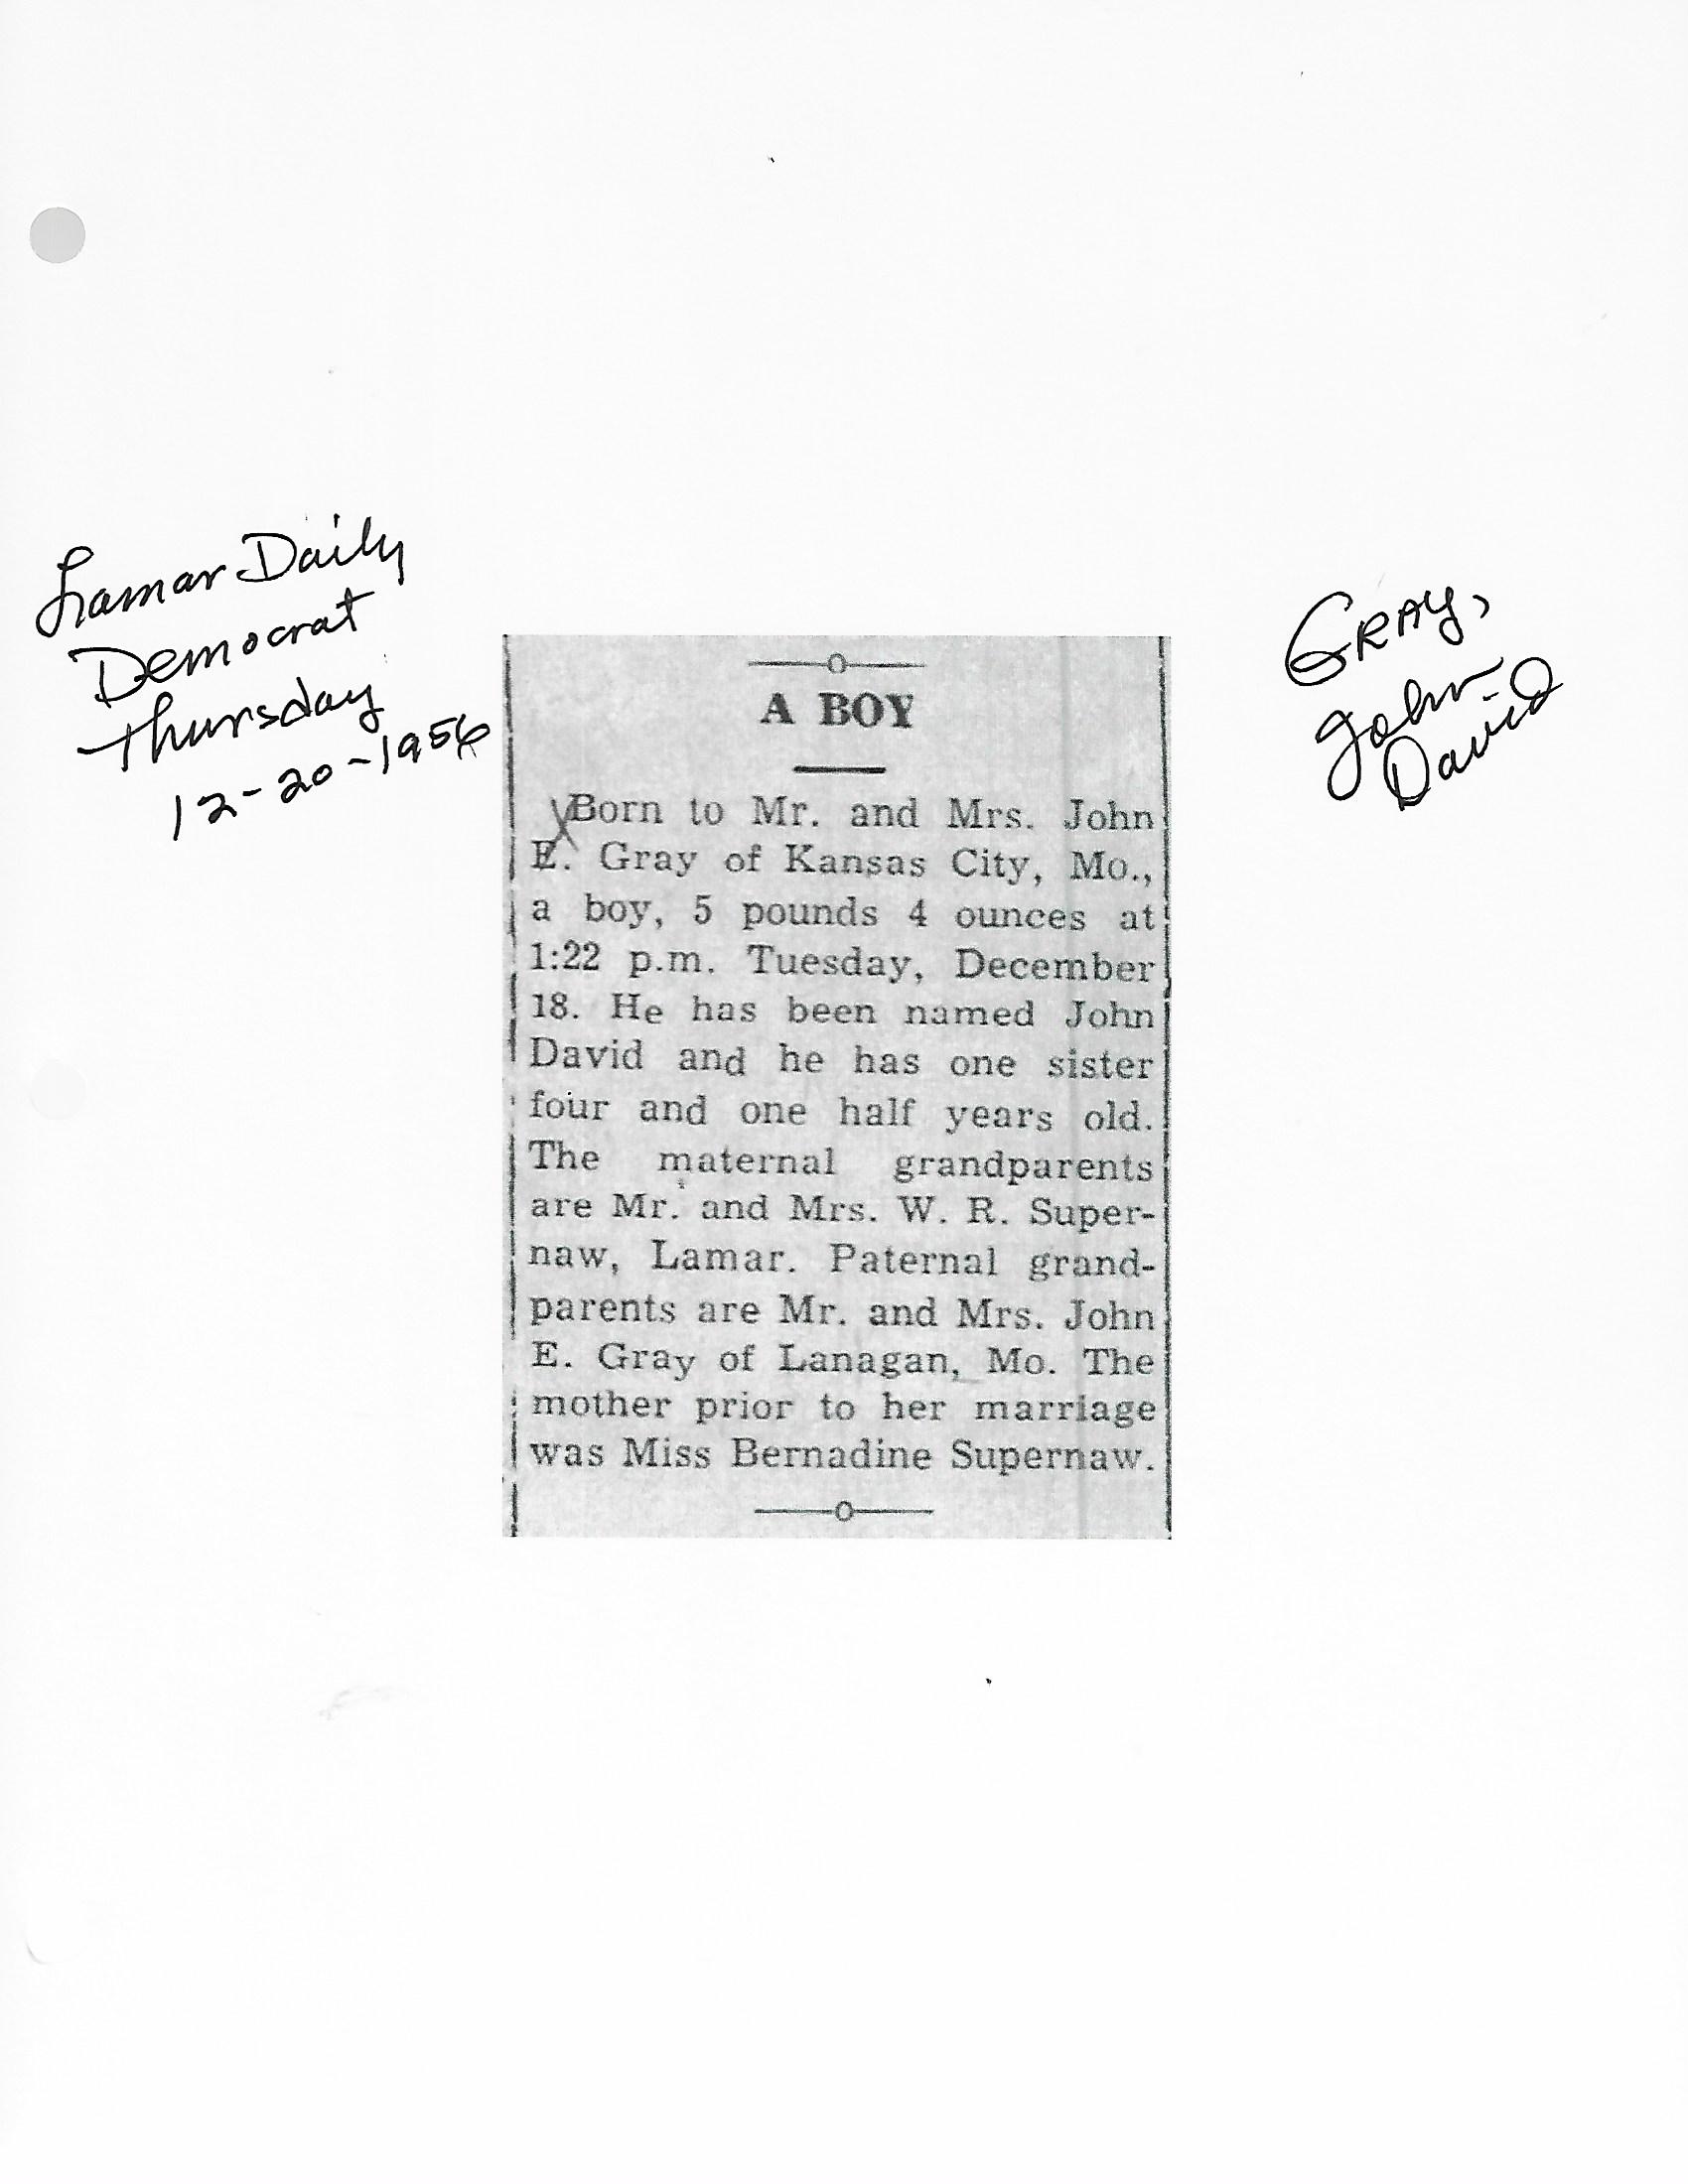 Lamar Daily
Democrat
Thursday
12-20-1956
GRAY,
John
David
A BOY
Born to Mr. and Mrs. John
E. Gray of Kansas City, Mo.,
a boy, 5 pounds 4 ounces at
1:22 p.m. Tuesday, December
18. He has been named John
David and he has one sister
four and one half years old.
The maternal grandparents
are Mr. and Mrs. W. R. Super-
naw, Lamar. Paternal grand-
parents are Mr. and Mrs. John
E. Gray of Lanagan, Mo. The
mother prior to her marriage
was Miss Bernadine Supernaw.